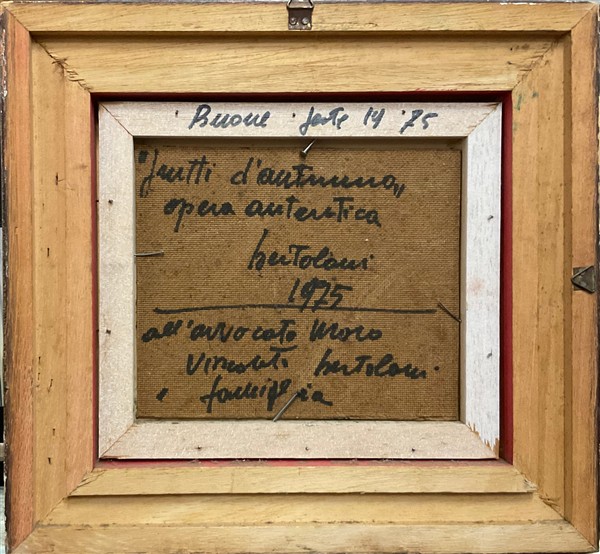 Buone feste 14 '75
"frutti d'autunno"
opera autentica
bertolani
1975
all'avvocato Moro
bertolani
" famiglia